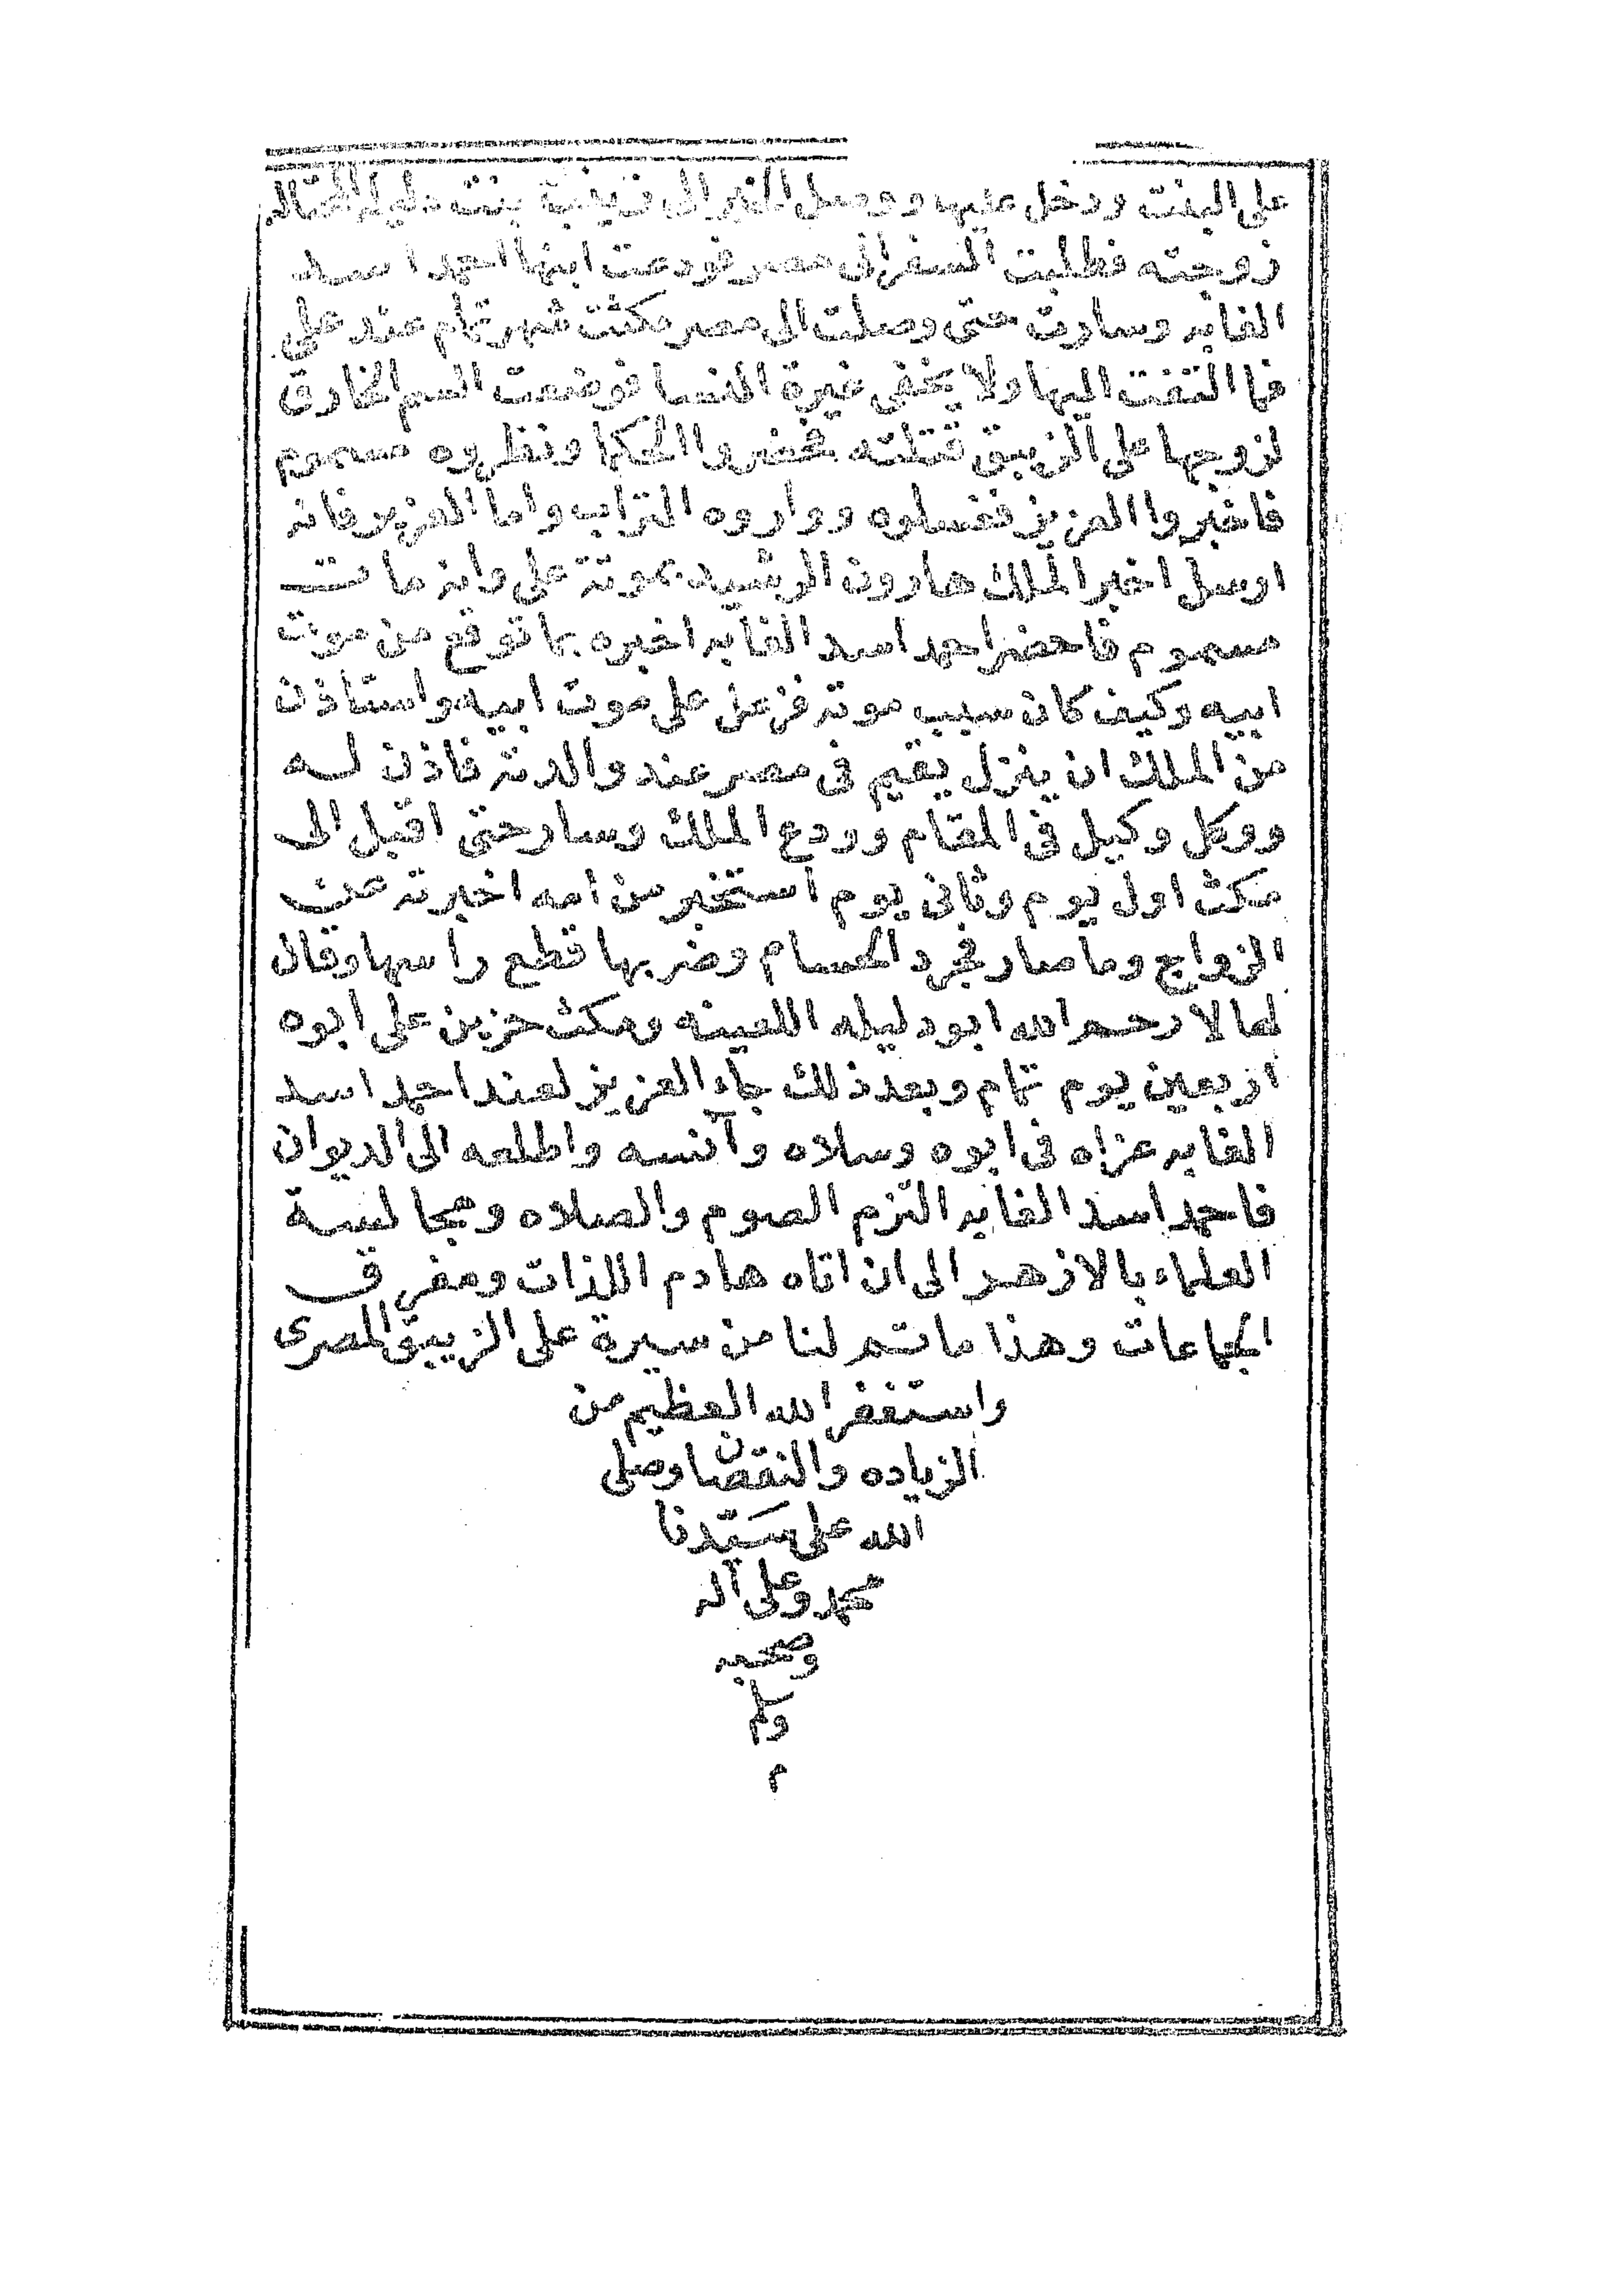 على البنت ودخل عليها ووصل الخبر الى زينبة بنت دليله المحتاله
زوجته فطلبت السفر الى مصر فودعت ابنها احمد اسد
الغابه وسارت حتى وصلت الى مصر مكثت شهر تمام عند على
فما التفت اليها ولا يخفى غيرة النسا فوضعت السم الخارق
لزوجها على الزيبق قتلته فحضروا الحكما ونظروه مسموم
فاخبروا العزيز فغسلوه وواروه التراب واما العزيز فانه
ارسل اخبر الملك هارون الرشيد بموتة على وانه مات
مسموم فاحضر احمد اسد الغابه اخبره بما توقع من موت
ابيه وكيف كان سبب موته فزعل على موت ابيه واستاذن
من الملك ان ينزل يقيم فى مصر عند والدته فاذن له
ووكل وكيل فى المقام وودع الملك وسار حتى اقبل الى
مكث اول يوم وثانى يوم استخبر من امه اخبرته عن
الزواج وما صار فجرد الحسام وضربها قطع راسها وقال
لها لا رحم الله ابو دليله اللعينه ومكث حزين على ابوه
اربعين يوم تمام وبعد ذلك جاء العزيز لعند احمد اسد
الغابه عزاه فى ابوه وسلاه وآنسه واطلعه الى الديوان
فاحمد اسد الغابه التزم الصوم والصلاه ومجالسة
العلماء بالازهر الى ان اتاه هادم اللذات ومفرق
الجماعات وهذا ما تم لنا من سيرة على الزيبق المصرى
واستغفر الله العظيم من
الزياده والنقصان وصلى
الله على سَيّدنا
محمد وعلى آله
وصحبه
وسلم
م